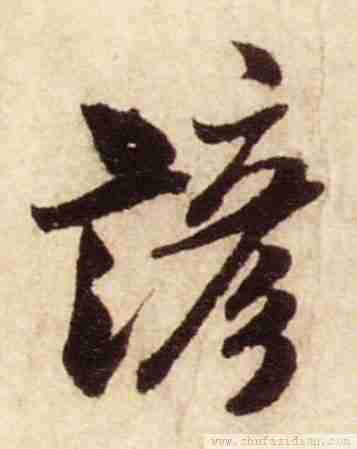 諺
www.shufazidian.com